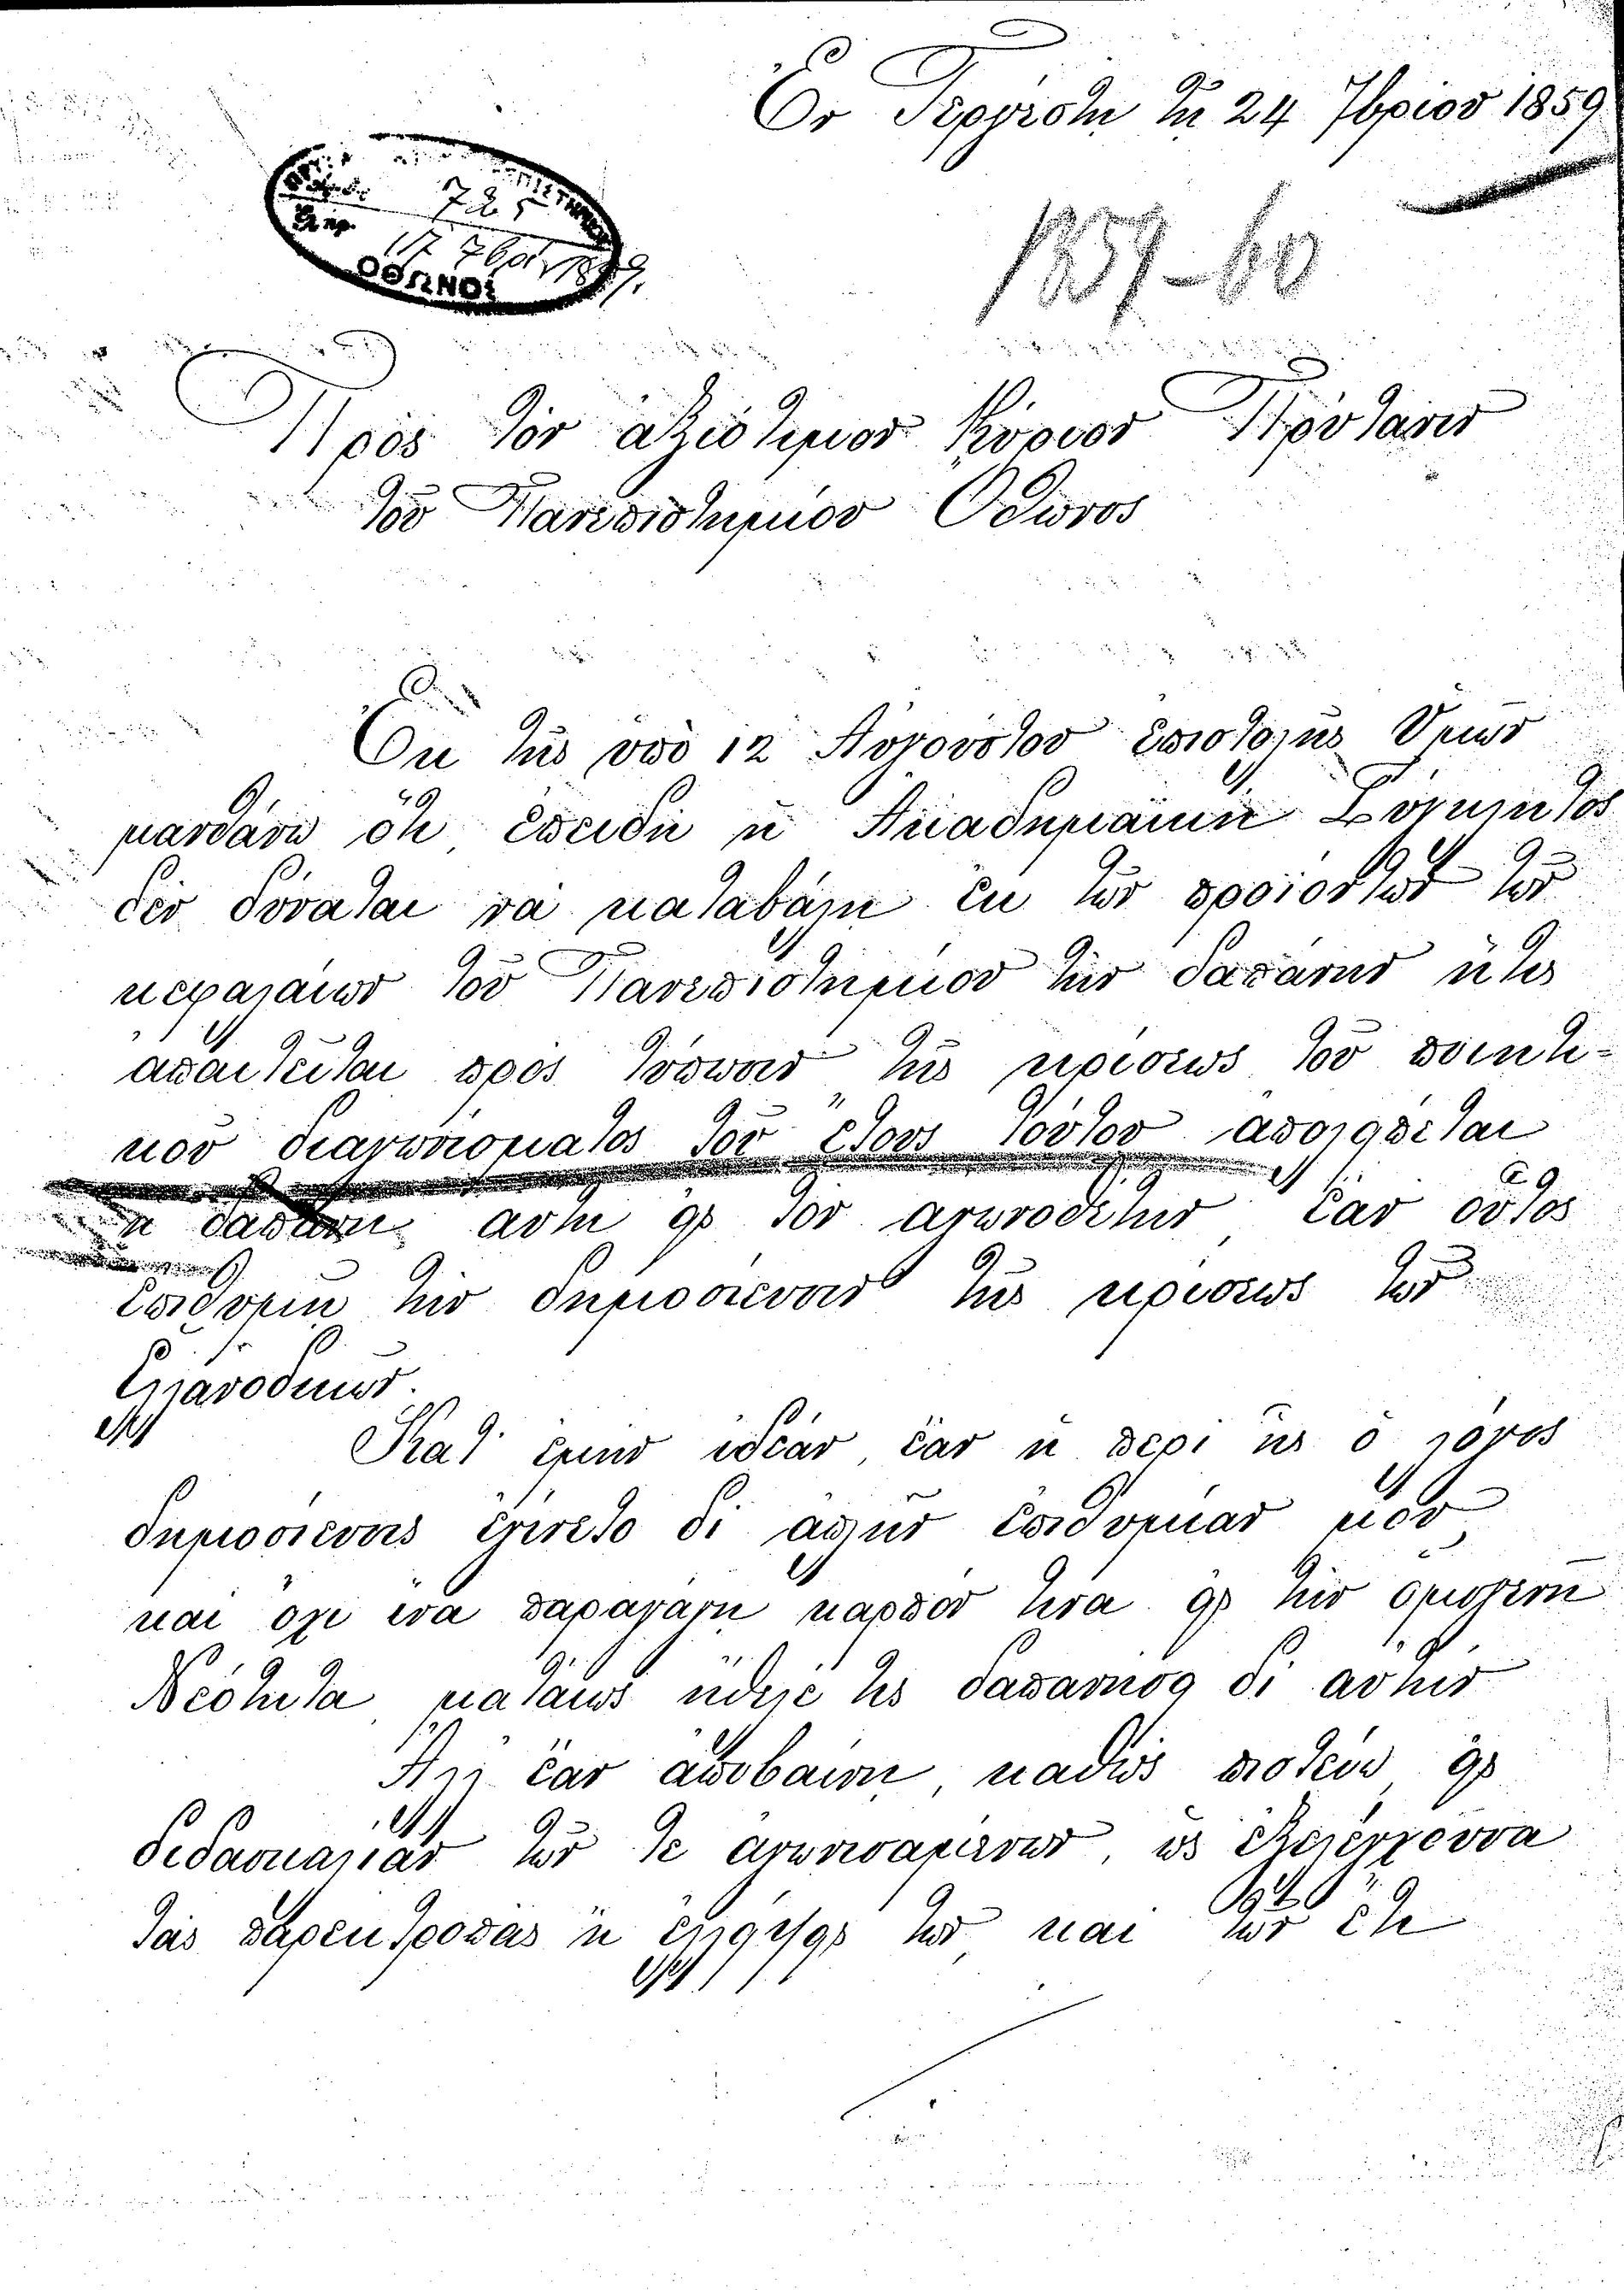 Ἐν Τεργέστῃ τῇ 24 7βρίου 1859
725
17 7βρίου 1859.
ΟΘΩΝΟΣ
1859-60
Πρὸς τὸν ἀξιότιμον Κύριον Πρύτανιν
τοῦ Πανεπιστημίου Ὄθωνος
Ἐκ τῆς ὑπὸ 12 Αὐγούστου ἐπιστολῆς Ὑμῶν
μανθάνω ὅτι ἐπειδὴ ἡ Ἀκαδημαϊκὴ Σύγκλητος
δὲν δύναται νὰ καταβάλῃ ἐκ τῶν προϊόντων τῶν
κεφαλαίων τοῦ Πανεπιστημίου τὴν δαπάνην ἥτις
ἀπαιτεῖται πρὸς τύπωσιν τῆς κρίσεως τοῦ ποιητι-
κοῦ διαγωνίσματος τοῦ ἔτους τούτου ἀπολήψεται
ἡ δαπάνη αὐτὴ εἰς τὸν ἀγωνοθέτην, ἐὰν οὗτος
ἐπιθυμῇ τὴν δημοσίευσιν τῆς κρίσεως τῶν
Ἑλλανοδικῶν.
Κατ' ἐμὴν ἰδέαν, ἐὰν ἡ περὶ ἧς ὁ λόγος
δημοσίευσις ἐγίνετο δι' ἁπλῆν ἐπιθυμίαν μου
καὶ ὄχι ἵνα παραγάγῃ καρπόν τινα εἰς τὴν ὁμογενῆ
Νεότητα, ματαίως ἤθελέ τις δαπανήσει δι' αὐτήν
Ἀλλ' ἐὰν ἀποβαίνῃ, καθὼς πιστεύω, εἰς
διδασκαλίαν τῶν τε ἀγωνισαμένων, ὡς ἐξελέγχουσα
τὰς παρεκτροπὰς ἢ ἐλλείψεις των, καὶ τῶν ἔτι